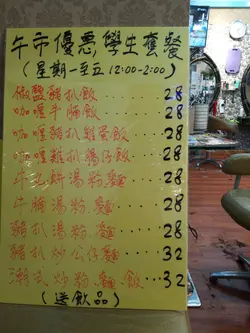 午市優惠,學生套餐
(星期一至五 12:00-2:00)
椒鹽豬扒飯......28
咖喱牛腩飯......28
咖喱豬扒飯......28
咖喱雞扒飯......28
牛丸 湯粉.麵...28
牛腩湯粉.麵...28
豬扒湯粉.麵...28
豬扒炒公仔麵...32
濕式炒粉.麵.飯...32
(送飲品)